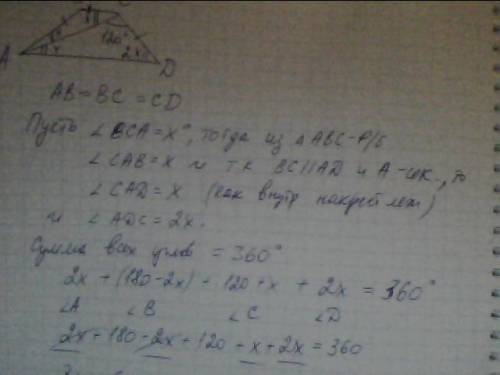 B C
x 120° 2x
A D
AB = BC = CD
Пусть ∠BCA = x°, тогда из △ABC – р/б
∠CAB = x и т.к BC∥AD и A-сек., то
∠CAD = x (как внутр накрест леж.)
и ∠ADC = 2x.
Сумма всех углов = 360°
2x + (180 - 2x) + 120 + x + 2x = 360°
∠A ∠B ∠C ∠D
2x + 180 - 2x + 120 + x + 2x = 360